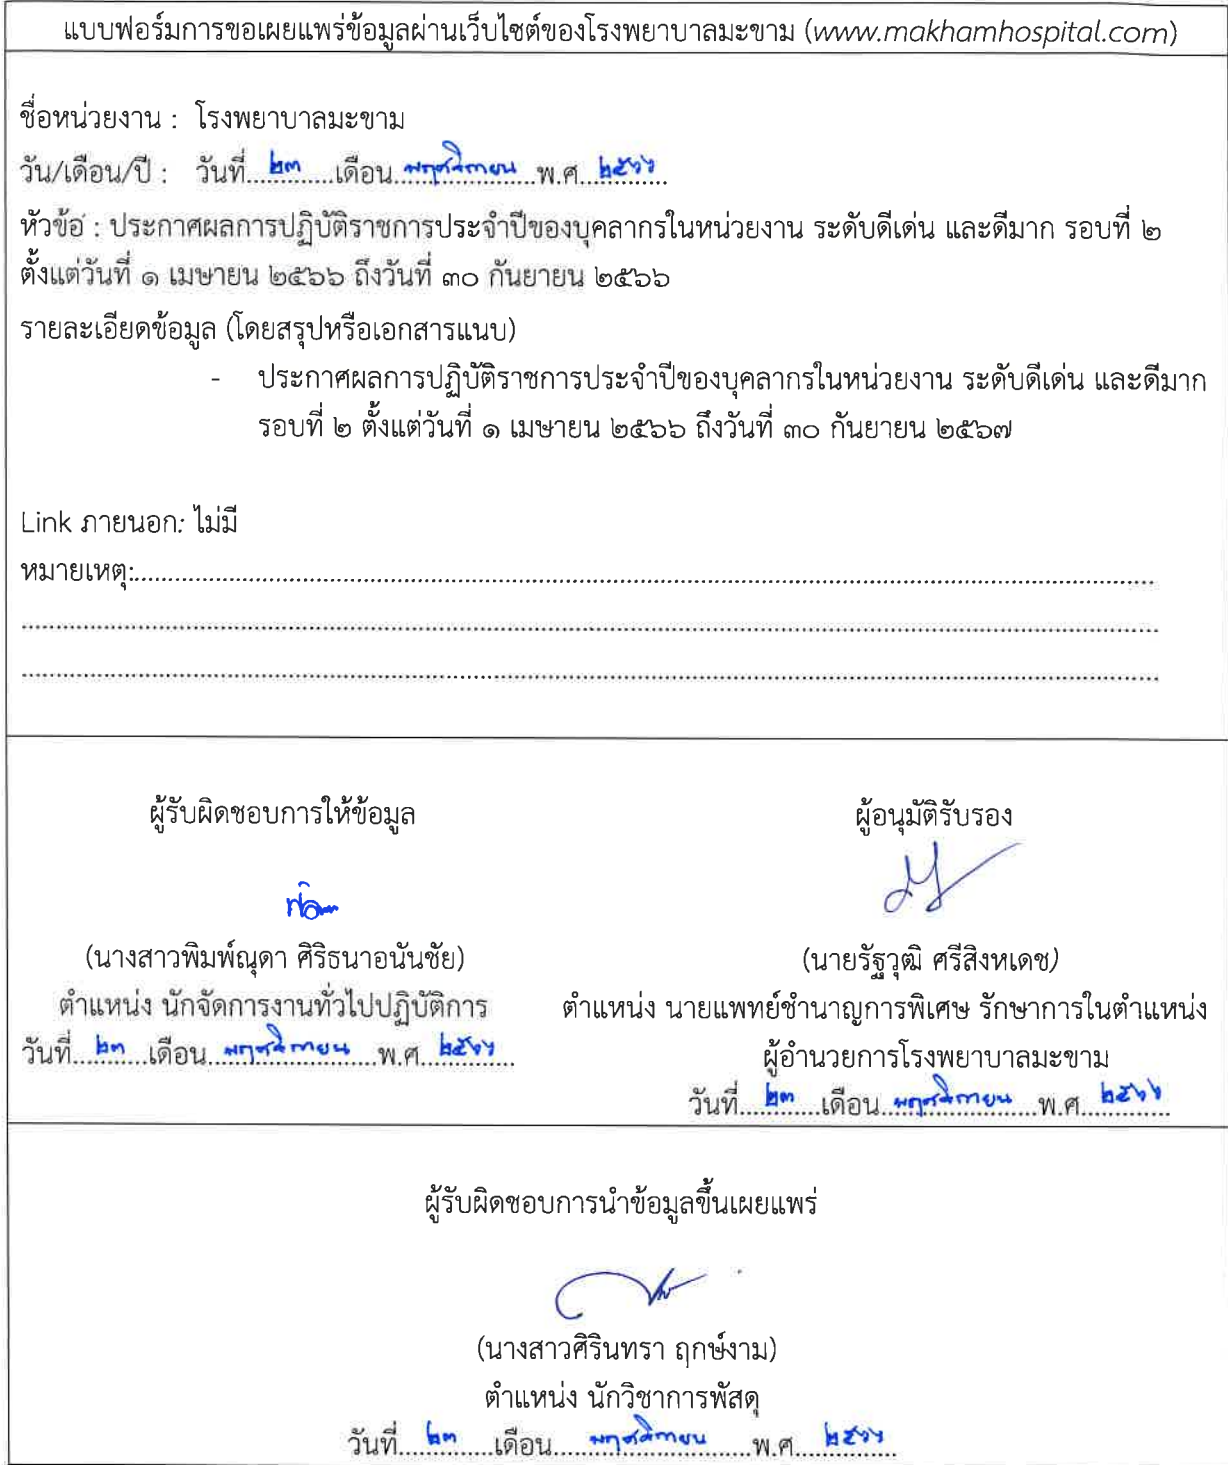 แบบฟอร์มการขอเผยแพร่ข้อมูลผ่านเว็บไซต์ของโรงพยาบาลมะขาม (www.makhamhospital.com)
ชื่อหน่วยงาน : โรงพยาบาลมะขาม
วัน/เดือน/ปี : วันที่....๒๓......เดือน..พฤศจิกายน..พ.ศ..๒๕๖๖......
หัวข้อ : ประกาศผลการปฏิบัติราชการประจำปีของบุคลากรในหน่วยงาน ระดับดีเด่น และดีมาก รอบที่ ๒
ตั้งแต่วันที่ ๑ เมษายน ๒๕๖๖ ถึงวันที่ ๓๐ กันยายน ๒๕๖๖
รายละเอียดข้อมูล (โดยสรุปหรือเอกสารแนบ)
- ประกาศผลการปฏิบัติราชการประจำปีของบุคลากรในหน่วยงาน ระดับดีเด่น และดีมาก
รอบที่ ๒ ตั้งแต่วันที่ ๑ เมษายน ๒๕๖๖ ถึงวันที่ ๓๐ กันยายน ๒๕๖๗
Link ภายนอก: ไม่มี
หมายเหตุ:..........
ผู้รับผิดชอบการให้ข้อมูล
(นางสาวพิมพ์ณุดา ศิริธนาอนันชัย)
ตำแหน่ง นักจัดการงานทั่วไปปฏิบัติการ
วันที่...๒๓......เดือน..พฤศจิกายน...พ.ศ...๒๕๖๖...
ผู้อนุมัติรับรอง
(นายรัฐวุฒิ ศรีสิงหเดช)
ตำแหน่ง นายแพทย์ชำนาญการพิเศษ รักษาการในตำแหน่ง
ผู้อำนวยการโรงพยาบาลมะขาม
วันที่....๒๓.....เดือน..พฤศจิกายน....พ.ศ..๒๕๖๖....
ผู้รับผิดชอบการนำข้อมูลขึ้นเผยแพร่
(นางสาวศิรินทรา ฤกษ์งาม)
ตำแหน่ง นักวิชาการพัสดุ
วันที่....๒๓......เดือน.....พฤศจิกายน.....พ.ศ....๒๕๖๖....